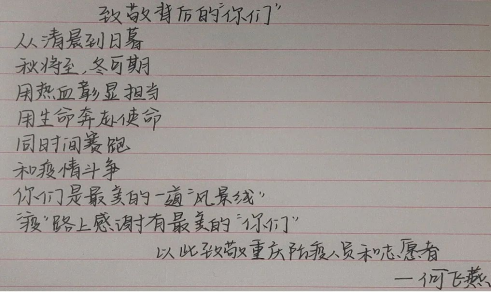 致敬背后的"你们"
从清晨到日暮
秋将至,冬可期
用热血彰显担当
用生命奔赴使命
同时间赛跑
和疫情斗争
你们是最美的一道"风景线"
"疫"路上感谢有最美的"你们"
以此致敬重庆防疫人员和志愿者
—何飞燕